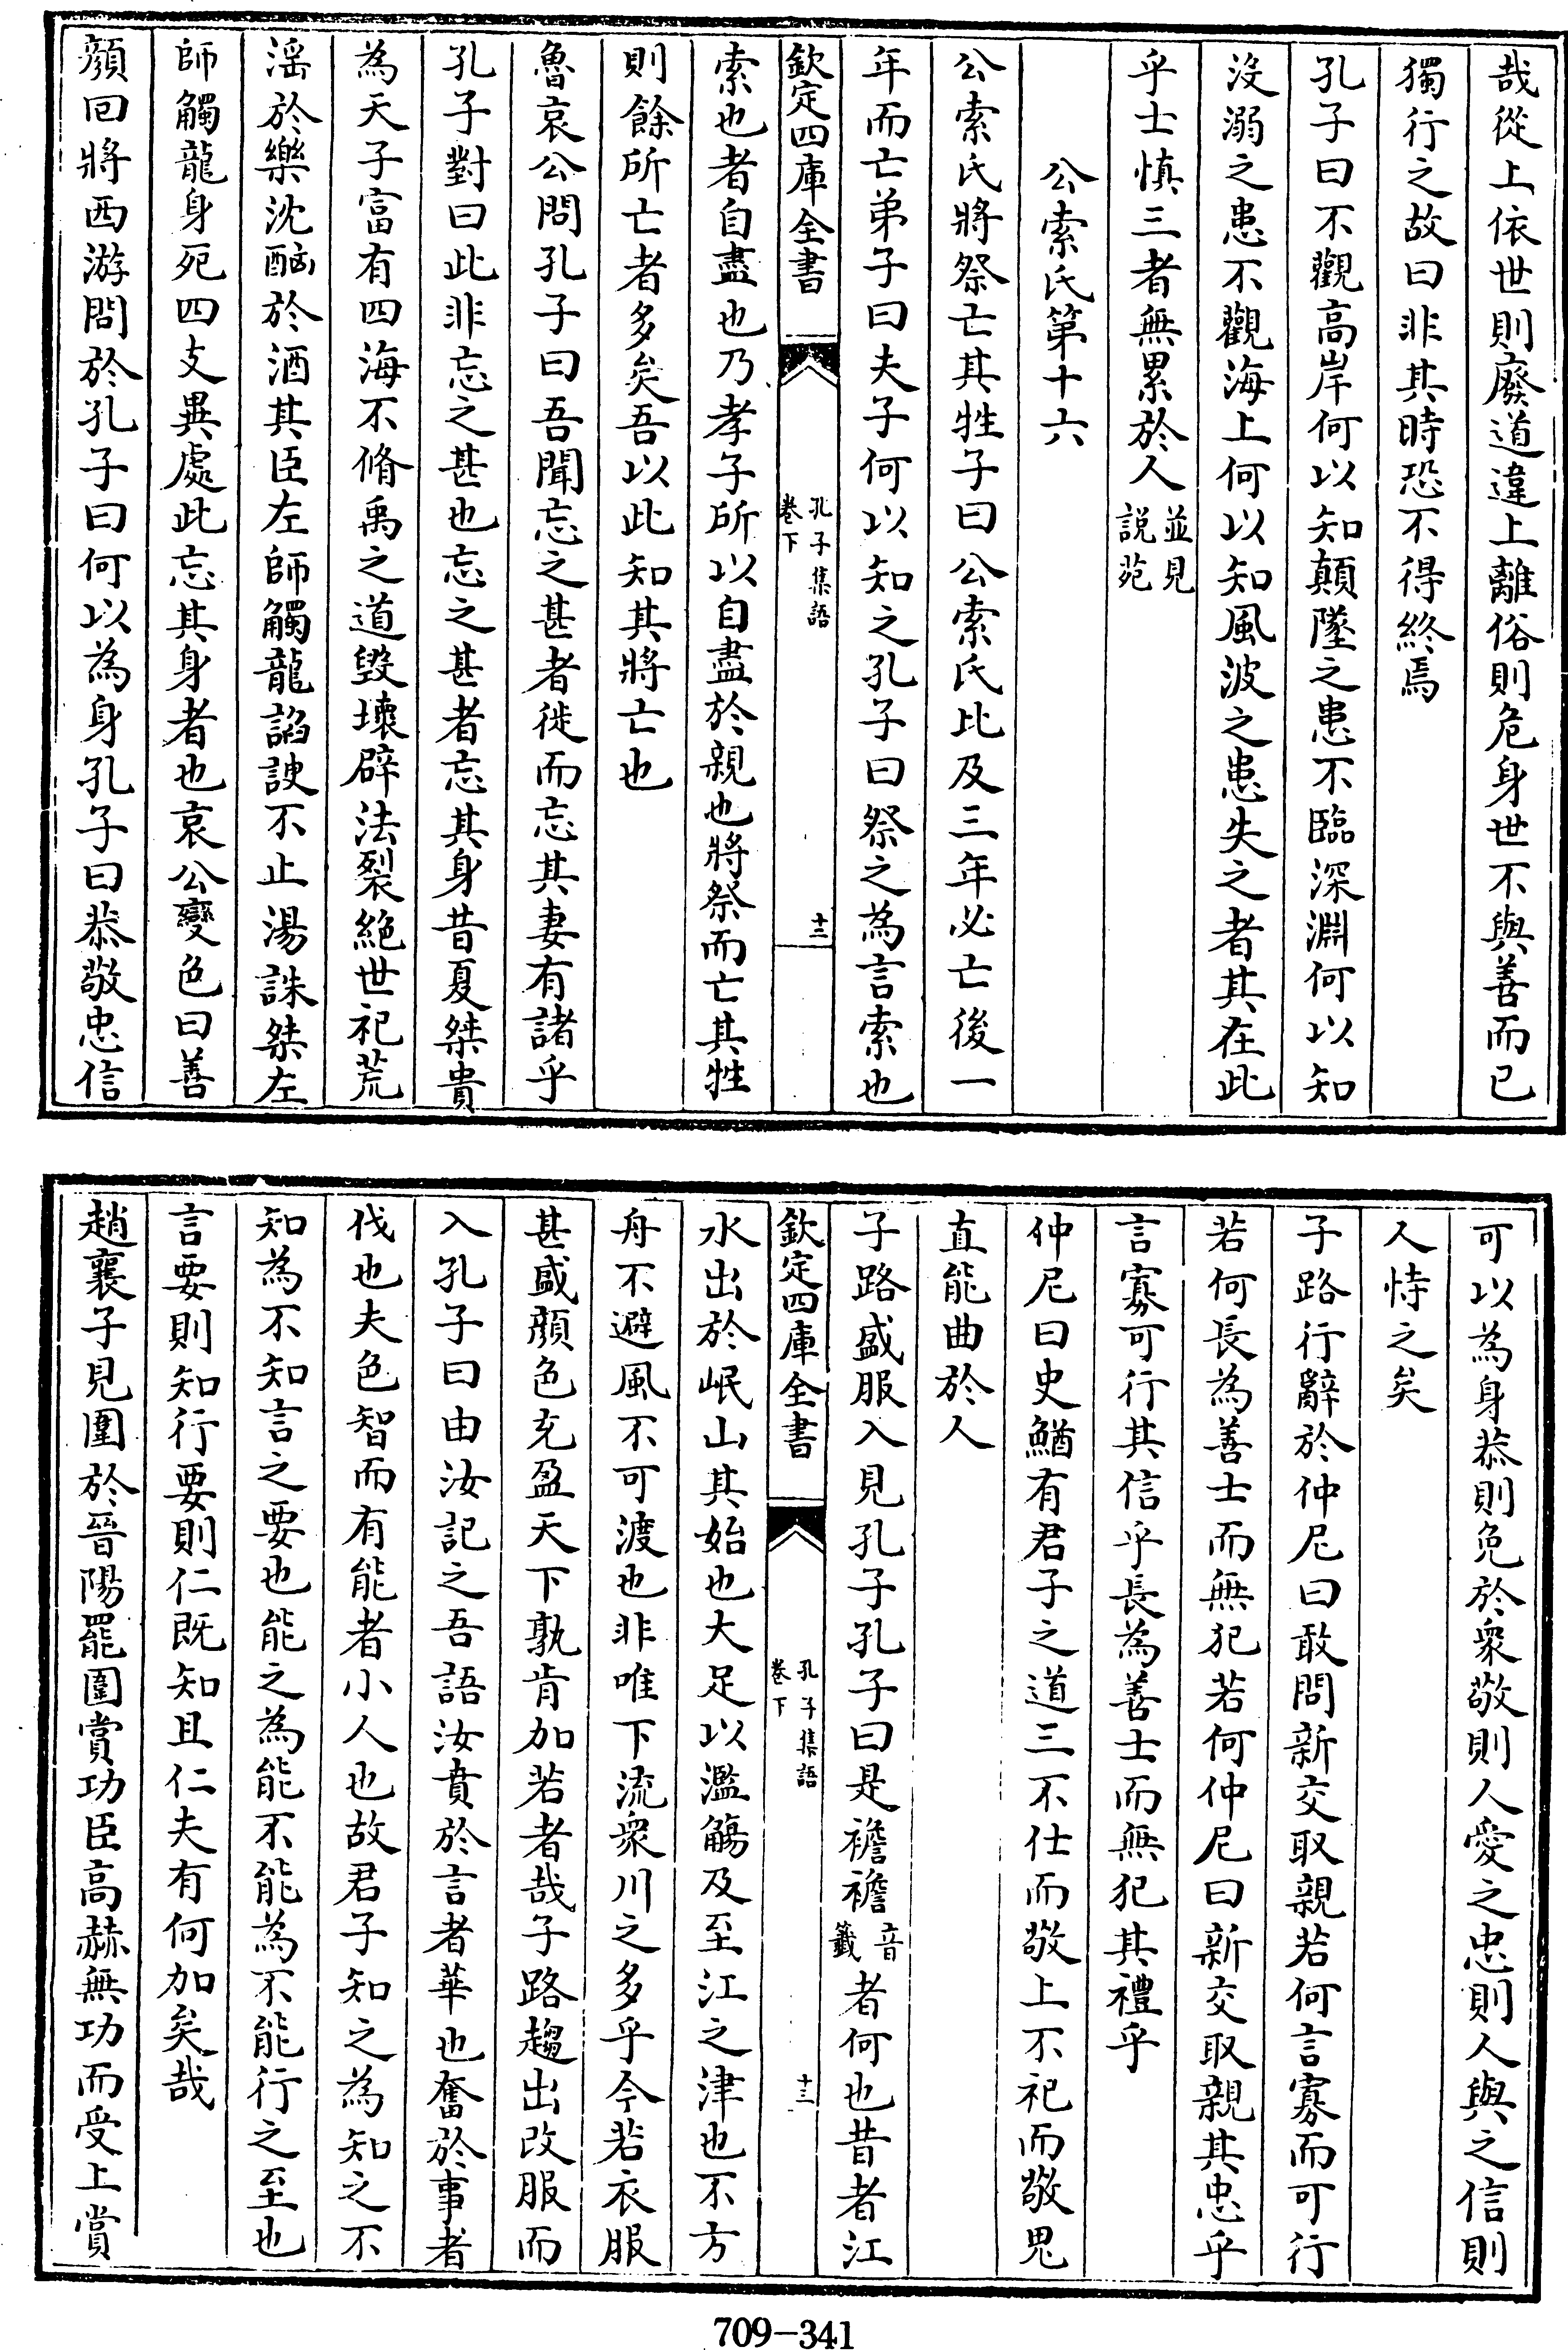 哉從上依世則廢道違上離俗則危身世不與善而已
獨行之故曰非其時恐不得終焉
孔子曰不觀高岸何以知顛墜之患不臨深淵何以知
沒溺之患不觀海上何以知風波之患失之者其在此
乎士慎三者無累於人並見說苑
公索氏第十六
公索氏將祭亡其牲子曰公索氏比及三年必亡後一
年而亡弟子曰夫子何以知之孔子曰祭之為言索也
欽定四庫全書 孔子集語 卷下 十二
索也者自盡也乃孝子所以自盡於親也將祭而亡其牲
則餘所亡者多矣吾以此知其將亡也
魯哀公問孔子曰吾聞忘之甚者徙而忘其妻有諸乎
孔子對曰此非忘之甚也忘之甚者忘其身昔夏桀貴
為天子富有四海不脩禹之道毀壞辟法裂絕世祀荒
滛於樂沈酗於酒其臣左師觸龍謟諛不止湯誅桀左
師觸龍身死四支異處此忘其身者也哀公變色曰善
顏回將西游問於孔子曰何以為身孔子曰恭敬忠信
可以為身恭則免於衆敬則人愛之忠則人與之信則
人恃之矣
子路行辭於仲尼曰敢問新交取親若何言寡而可行
若何長為善士而無犯若何仲尼曰新交取親其忠乎
言寡可行其信乎長為善士而無犯其禮乎
仲尼曰史鰌有君子之道三不仕而敬上不祀而敬鬼
直能曲於人
子路盛服入見孔子孔子曰是襜襜音籖者何也昔者江
欽定四庫全書 孔子集語 卷下 十三
水出於岷山其始也大足以濫觴及至江之津也不方
舟不避風不可渡也非唯下流衆川之多乎今若衣服
甚盛顏色充盈天下孰肯加若者哉子路趨出改服而
入孔子曰由汝記之吾語汝賁於言者華也奮於事者
伐也夫色智而有能者小人也故君子知之為知之不
知為不知言之要也能之為能不能為不能行之至也
言要則知行要則仁既知且仁夫有何加矣哉
趙襄子見圍於晉陽罷圍賞功臣高赫無功而受上賞
709-341